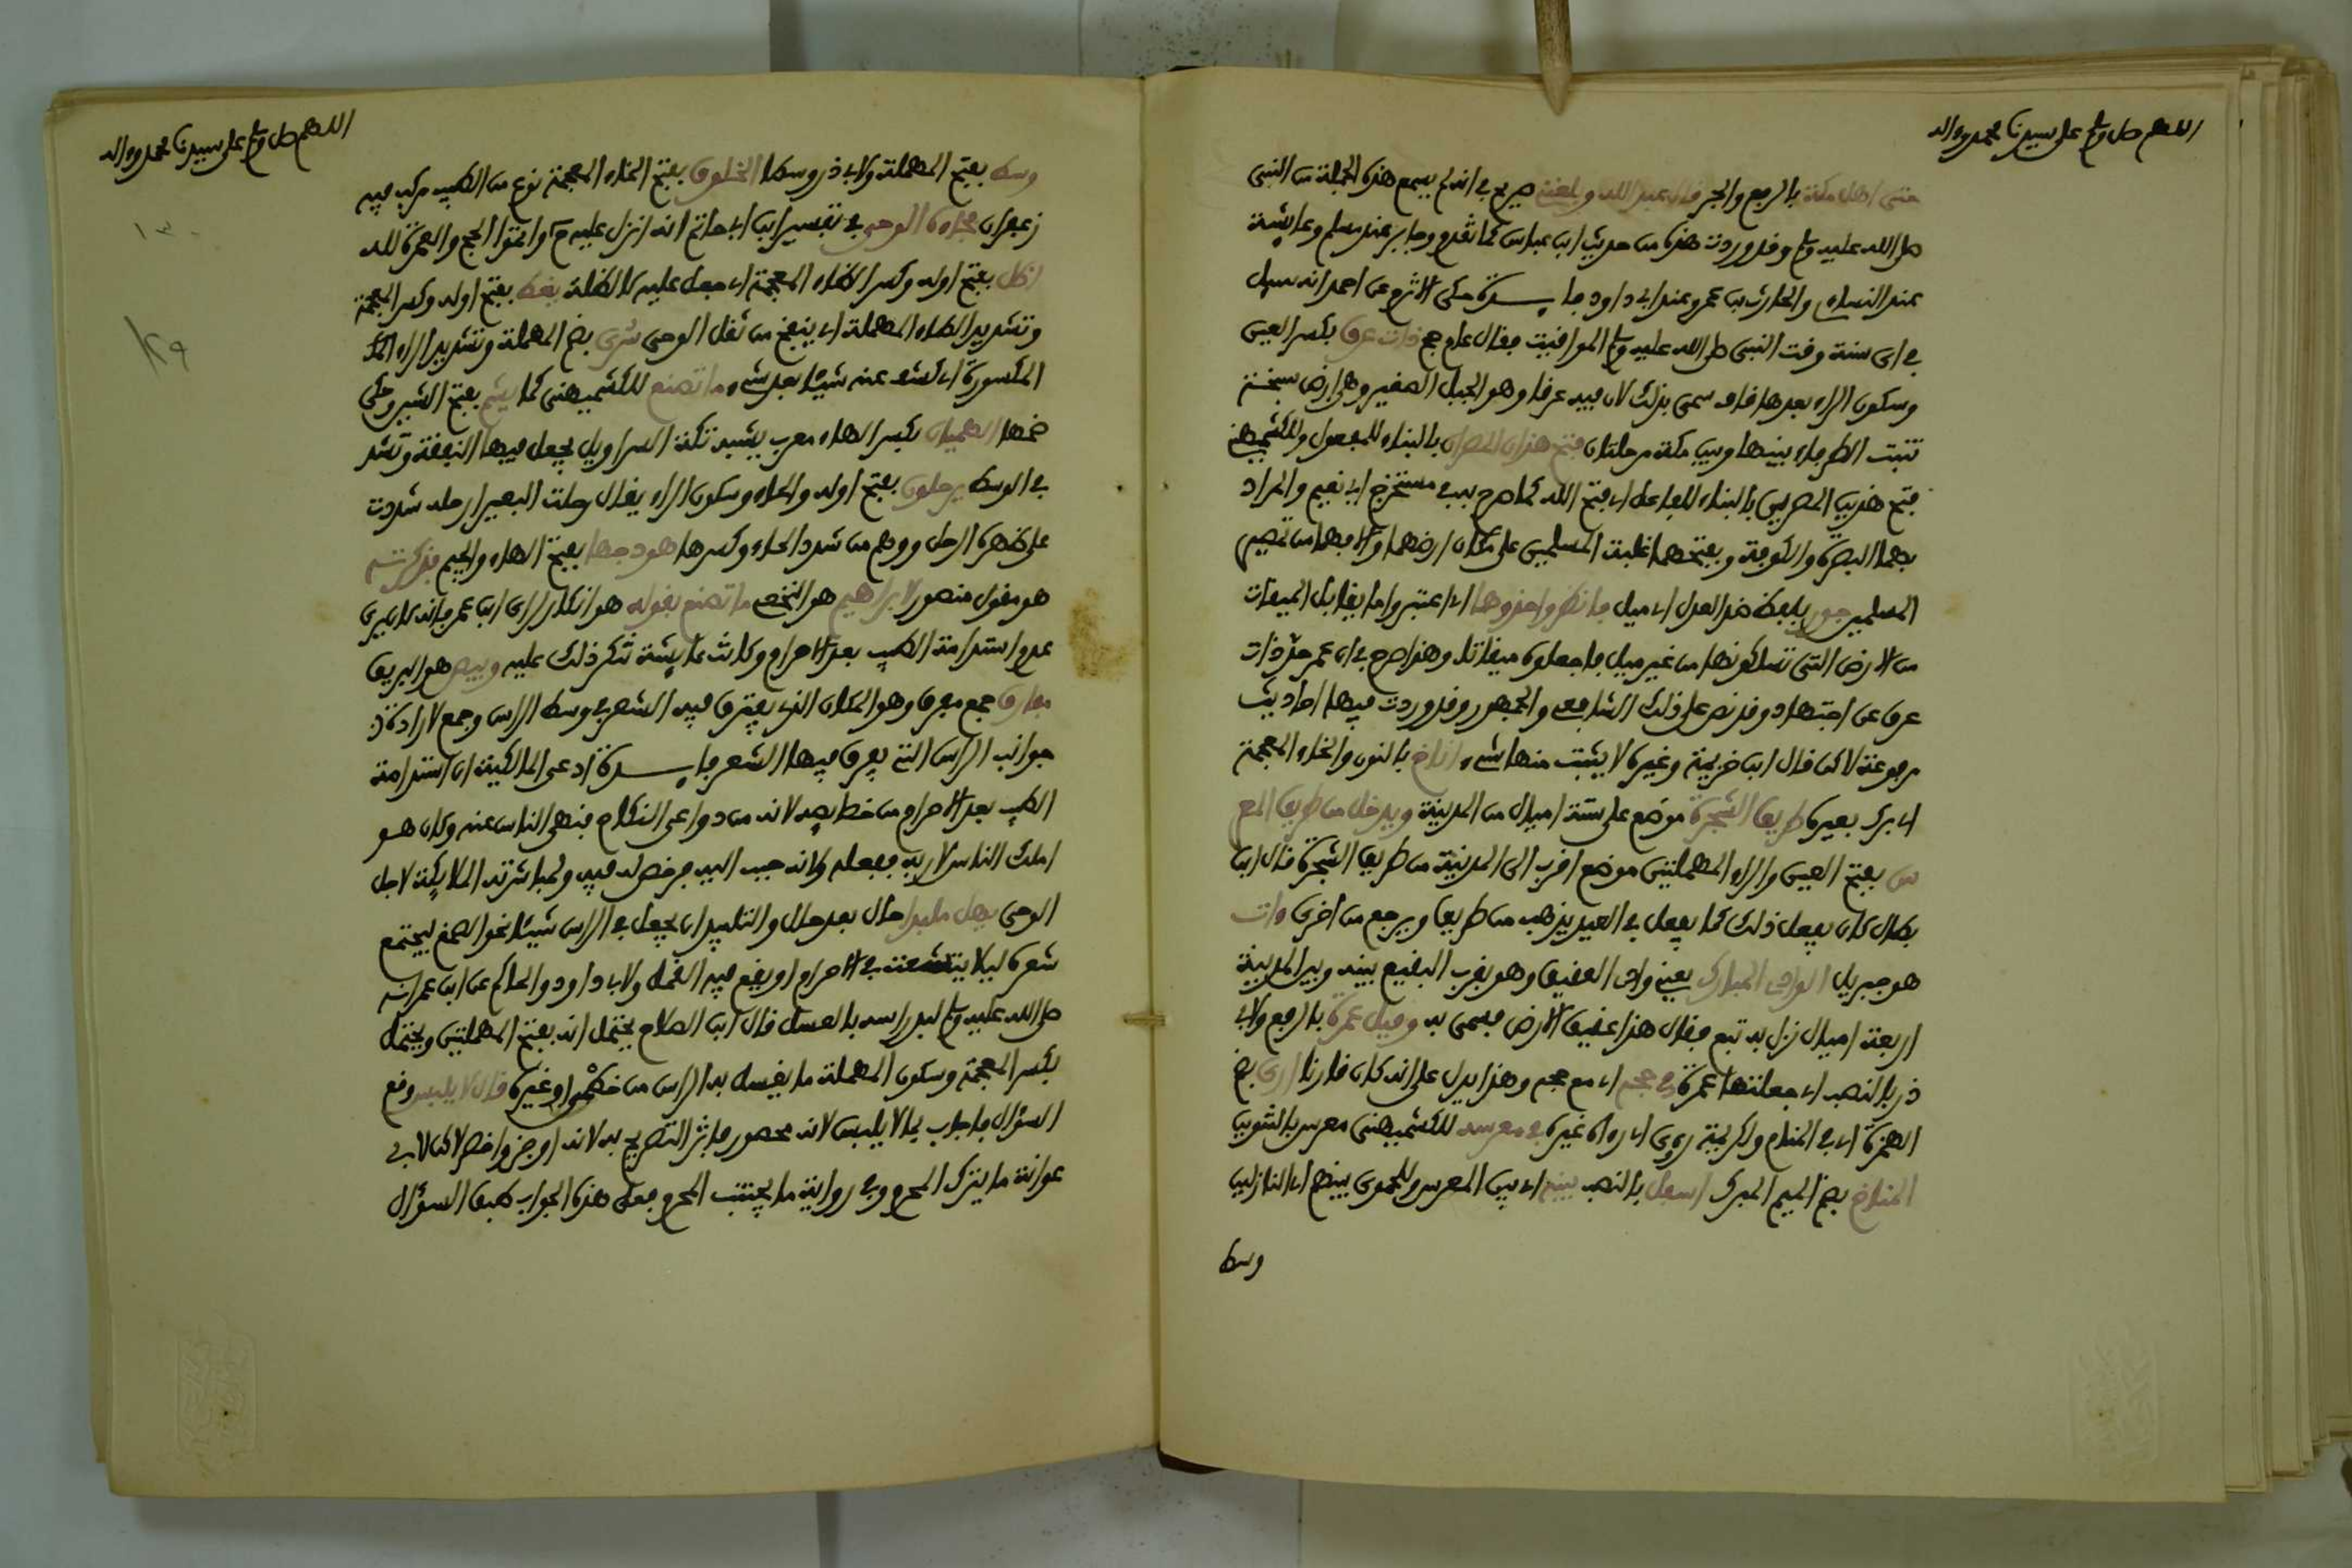 اللهم صل وسلم على سيدنا محمد وءاله
حتى اهل مكة بالرفع والجر قال عبد الله وبلغني صريح في انه لم يسمع هذه الجملة من النبي
صلى الله عليه وسلم وقد وردت هذه من حديث ابن عباس كما تقدم وجابر عند مسلم وعايشة
عند النساءي والحارث بن عمرو عند ابي داود فايدة حكى الاثرم عن احمد انه سيل
في اي سنة وقت النبي صلى الله عليه وسلم المواقيت فقال عام حج ذات عرق بكسر العين
وسكون الراء بعدها قاف سمي بذلك لان فيه عرقا وهو الجبل الصغير وهي ارض سبخة
تنبت الطرفاء بينها وبين مكة مرحلتان فتح هذان المصران بالبناء للمفعول وللكشميهني
فتح هذين المصرين بالبناء للفاعل اي فتح الله كما صرح به في مستخرج ابي نعيم والمراد
بهما البصرة والكوفة وبفتحهما غلبة المسلمين على مكان ارضهما والا فهما من تمصير
المسلمين جور بلفظ ضد العدل اي ميل فانظروا حذوها اي اعتبروا ما يقابل الميقات
من الارض التي تسلكونها من غير ميل فاجعلوه ميقاتا وهذا صرح في ان عمر حد ذات
عرق عن اجتهاد وقد نص على ذلك الشافعي والجمهور وقد وردت فيها احاديث
مرفوعة لاكن قال ابن خزيمة وغيره لا يثبت منها شيء اناخ بالنون والخاء المعجمة
اي برك بعيره طريق الشجرة موضع على ستة اميال من المدينة ويدخل من طريق المع
س بفتح العين والراء المهملتين موضع اقرب الى المدينة من طريق الشجرة قال ابن
بطال كان يفعل ذلك كما يفعل في العيد يذهب من طريق ويرجع من اخرى ءات
هو جبريل الوادي المبارك يعني وادي العقيق وهو بقرب البقيع بينه وبين المدينة
اربعة اميال نزل به تبع فقال هذا عقيق الارض فسمي به وقيل عمرة بالرفع ولابي
ذر بالنصب اي جعلتها عمرة في حجة اي مع حجة وهذا يدل على انه كان قارنا اري بضم
الهمزة اي في المنام ولكريمة رءي اي رءاه غيره في معرسه للكشميهني معرس بالتنوين
المناخ بضم الميم المبرك اسفل بالنصب بينه اي بين المعرس وللحموي بينهم اي النازلين
وسط
اللهم صل وسلم على سيدنا محمد وءاله
وسط بفتح المهملة ولابي ذر وسطا الخلوق بفتح الخاء المعجمة نوع من الطيب مركب فيه
زعفران فجاءه الوحي في تفسير ابن ابي حاتم انه انزل عليه ح واتموا الحج والعمرة لله
اظل بفتح اوله وكسر الظاء المعجمة اي جعل عليه كالظلة يغط بفتح اوله وكسر المعجمة
وتشديد الطاء المهملة اي ينفخ من ثقل الوحي سري بضم المهملة وتشديد الراء
المكسورة اي كشف عنه شيئا بعد شيء ما تصنع للكشميهني كما يشم بفتح الشين وحكي
ضمها الهميان بكسر الهاء معرب يشبه تكة السراويل يجعل فيها النفقة وتشد
في الوسط يرحلون بفتح اوله والحاء وسكون الراء يقال رحلت البعير ارحله شددت
على ظهره الرحل ووهم من شدد الحاء وكسرها هودجها بفتح الهاء والجيم فذكرته
هو مقول منصور لابراهيم هو النخعي ما تصنع بقوله هو انكار لراي ابن عمر فانه كان يرى
عدم استدامة الطيب بعد الاحرام وكانت عايشة تنكر ذلك عليه وبيص هو البريق
مفارق جمع مفرق وهو المكان الذي يفترق فيه الشعر في وسط الراس وجمع لارادة
جوانب الراس التي يفرق فيها الشعر فايدة ادعى المالكية ان استدامة
الطيب بعد الاحرام من خصايصه لانه من دواعي النكاح فنهى الناس عنه وكان هو
املك الناس لاربه ففعله ولانه حبب اليه فرخص له فيه ولمباشرته الملايكة لاجل
الوحي يهل ملبدا حال بعد حال والتلبيد ان يجعل في الراس شيئا نحو الصمغ ليجتمع
شعره ليلا يتشعث في الاحرام او يقع فيه القمل ولابي داود والحاكم عن ابن عمر انه
صلى الله عليه وسلم لبد راسه بالعسل قال ابن الصلاح يحتمل انه بفتح المهملتين ويحتمل
بكسر المعجمة وسكون المهملة ما يغسل به الراس من خطمي او غيره قال لا يلبس وقع
السؤال فاجاب بما لا يلبس لانه محصور فاثر التصريح به لانه اوجز واخصر لاكن لابي
عوانة ما يترك المحرم وفي رواية ما يجتنب المحرم فعلى هذه الجواب طبق السؤال
١٣٠
٢٩